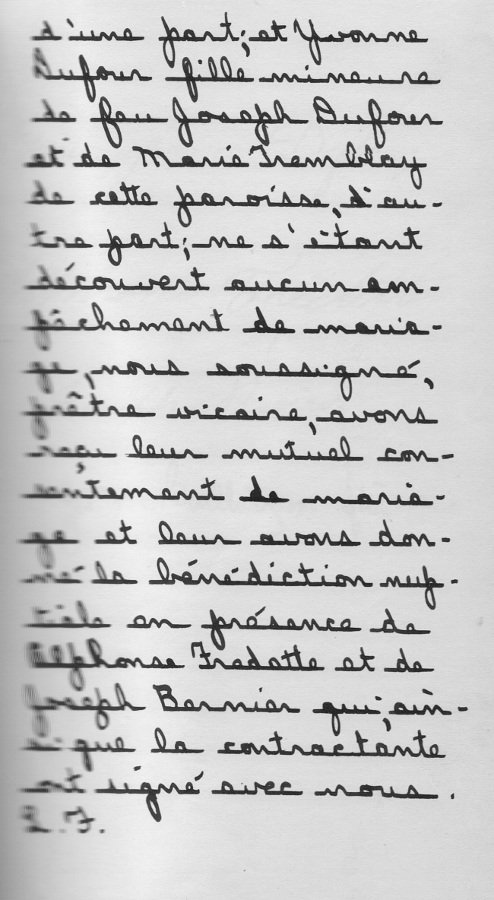 d'une part; et Yvonne
Dufour fille mineure
de feu Joseph Dufour
et de Marie Tremblay
de cette paroisse, d'au-
tre part; ne s'étant
découvert aucun em-
pêchement de maria-
ge, nous soussigné,
prêtre vicaire, avons
reçu leur mutuel con-
sentement de maria-
ge et leur avons don-
né la bénédiction nup-
tiale en présence de
Alphonse Fradette et de
Joseph Bernier qui, ain-
si que la contractante
ont signé avec nous.
L. F.